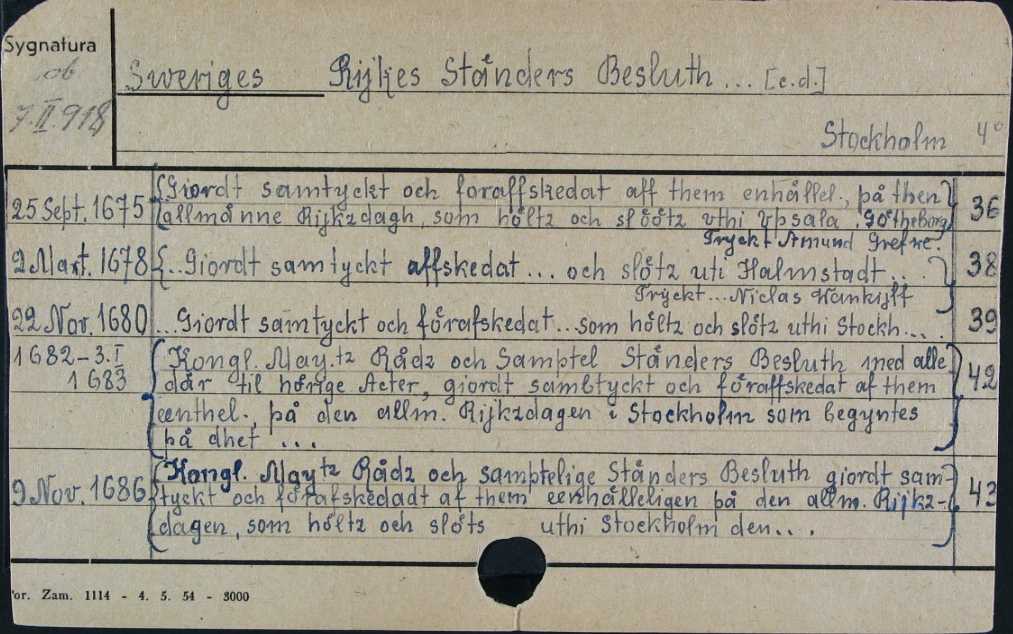 Sygnatura
ob
7.II.918
Sweriges Rijkes Stånders Besluth ... [c.d.]
Stockholm 4°
25 Sept. 1675 Giordt samtyckt och foraffskedat aff them enhållel., på then 36
allmånne Rijkzdagh, som höltz och slöötz vthi Vpsala, Götheborg
Tryckt Amund Grefwe.
2 Mart. 1678 ... Giordt samtyckt affskedat ... och slötz uti Halmstadt .. 38
Tryckt ... Niclas Wankijff
22 Nov. 1680 ... Giordt samtyckt och förafskedat ... som höltz och slötz uthi Stockh... 39
1682-3.I Kongl. May.tz Rådz och Samptel Stånders Besluth med alle 42
1683 dår til hörige Acter, giordt sambtyckt och föraffskedat af them
eenthel., på den allm. Rijkzdagen i Stockholm som begyntes
på dhet ...
9 Nov. 1686 Kongl. Maytz Rådz och samptelige Stånders Besluth giordt sam- 43
tyckt och förafskedadt af them eenhålleligen på den allm. Rijkz-
dagen, som höltz och slöts uthi Stockholm den...
or. Zam. 1114 - 4. 5. 54 - 3000